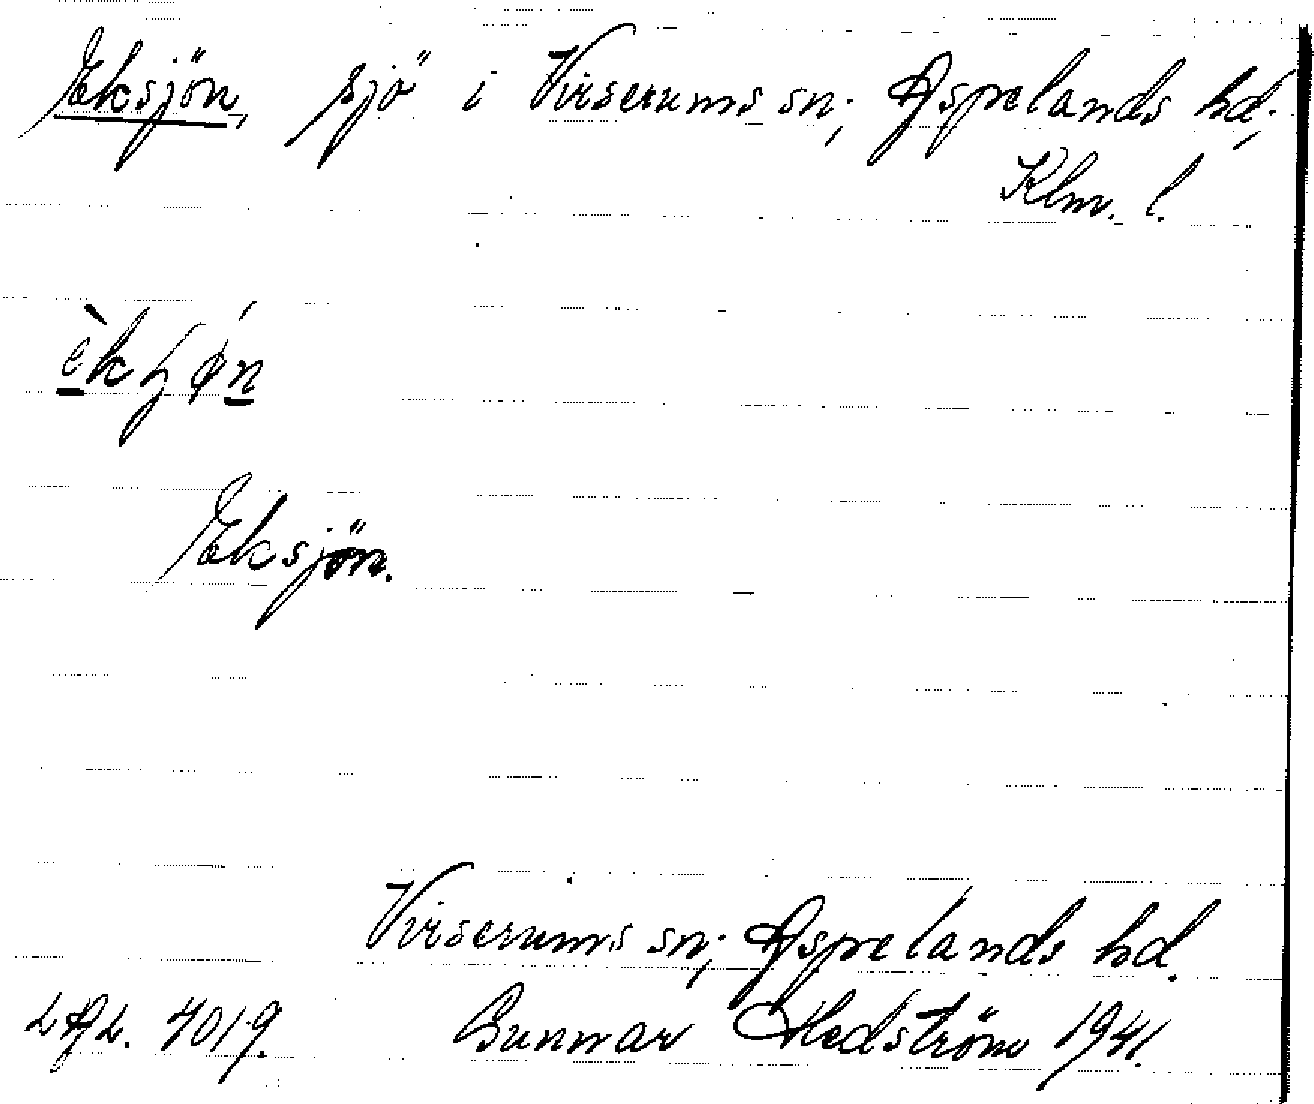 Eksjön, sjö i Virserums sn; Aspelands hd;
Klm. l.
Eksjön.
Virserums sn; Aspelands hd.
Gunnar Hedström 1941.